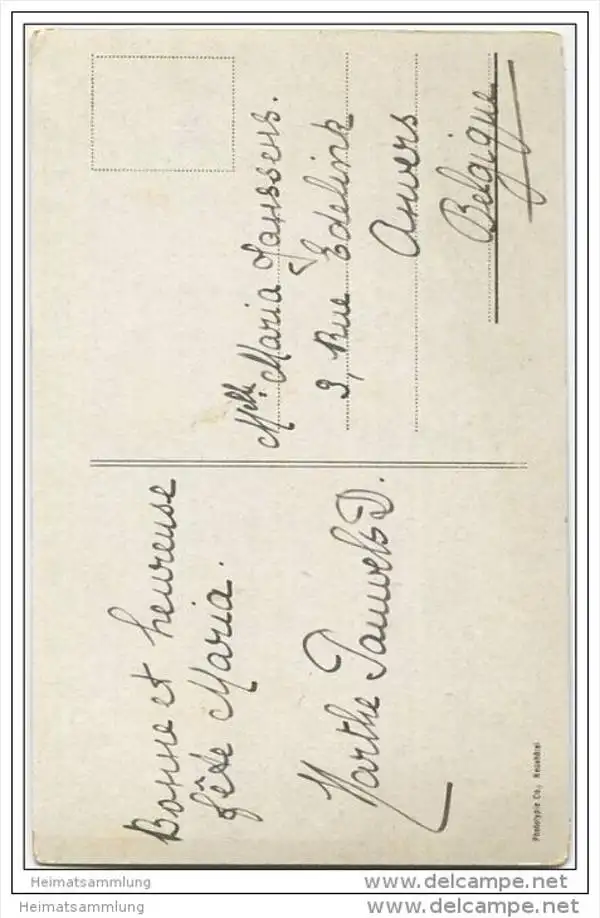 Bonne et heureuse
fête Maria.
Marthe Pauwels D.
Mlle Maria Janssens.
9, Rue Edelink
Anvers
Belgique
Phototypie Co., Neuchâtel
Heimatsammlung
www.delcampe.net
Heimatsammlung
www.delcampe.net